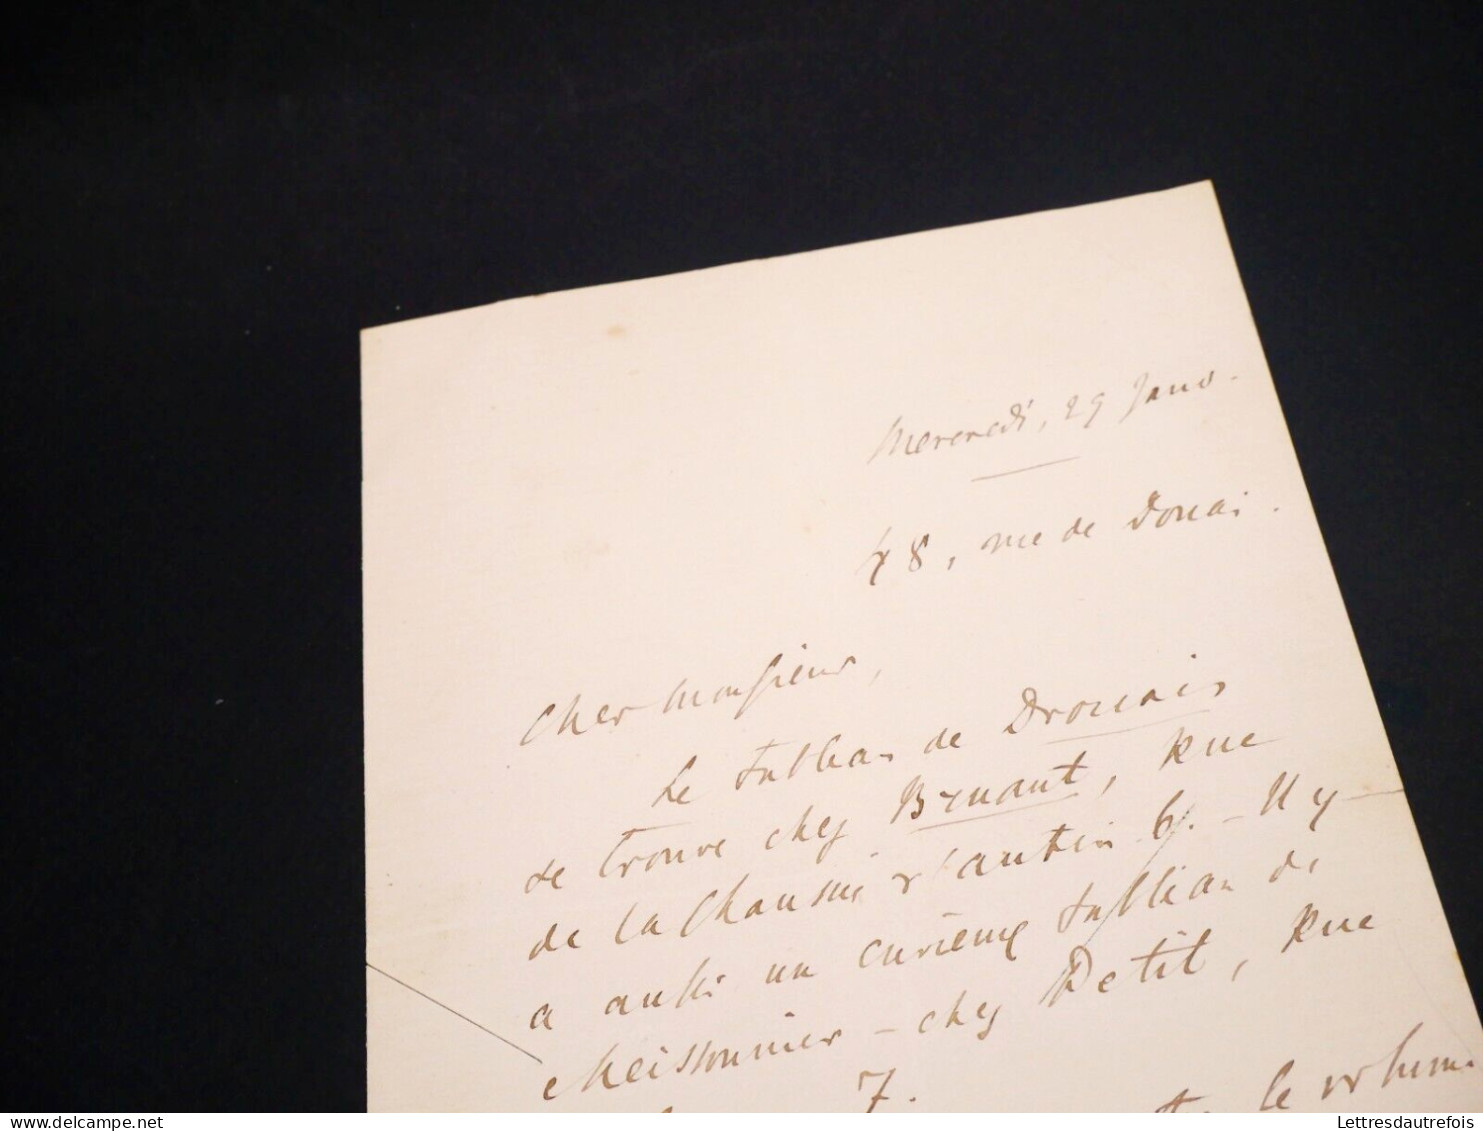 Mercredi, 29 Janv.
48, rue de Douai.
Cher Monsieur,
Le tableau de Drouais
se trouve chez Bruant, Rue
de la Chaussée d'antin 6. - Il y
a aussi un curieux tableau de
Meissonnier - chez Petit, Rue
7.
le volume
Lettresdautrefois